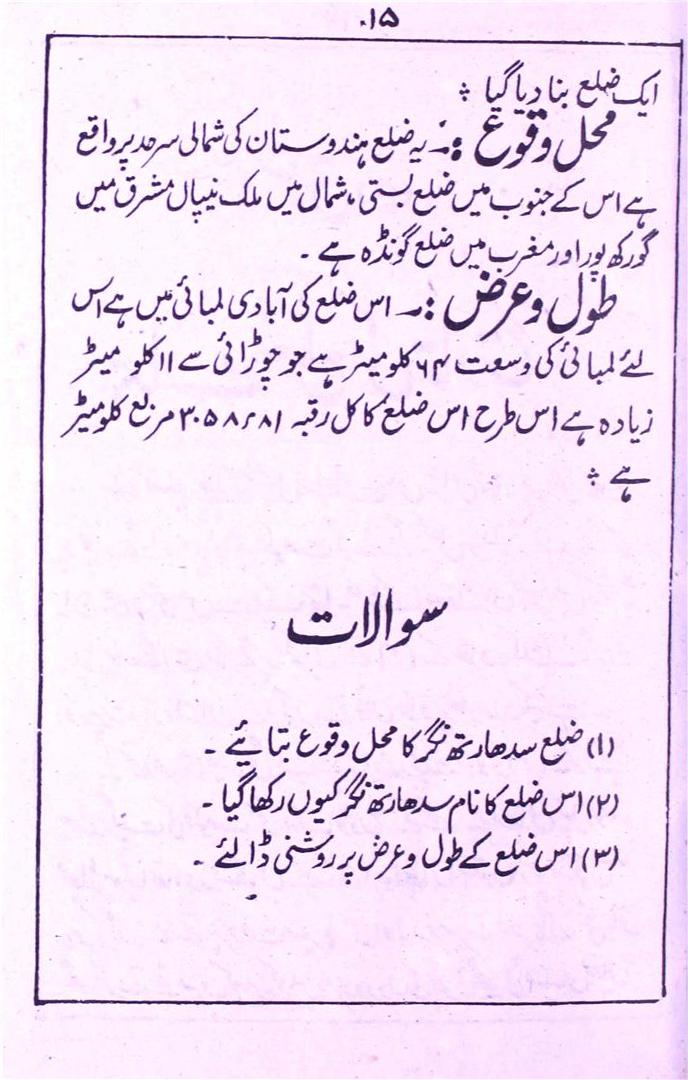 ۱۵
ایک ضلع بنا دیا گیا ؞
محل وقوع :۔ یہ ضلع ہندوستان کی شمالی سرحد پر واقع
ہے اس کے جنوب میں ضلع بستی ، شمال میں ملک نیپال مشرق میں
گورکھ پور اور مغرب میں ضلع گونڈہ ہے ۔
طول و عرض :۔ اس ضلع کی آبادی لمبائی میں ہے اس
لئے لمبائی کی وسعت ۶۴ کلومیٹر ہے جو چوڑائی سے ۱۱ کلو میٹر
زیادہ ہے اس طرح اس ضلع کا کل رقبہ ۳۰۵۸٫۲۸۱ مربع کلومیٹر
ہے ؞
سوالات
(۱) ضلع سدھارتھ نگر کا محل وقوع بتائیے ۔
(۲) اس ضلع کا نام سدھارتھ نگر کیوں رکھا گیا ۔
(۳) اس ضلع کے طول و عرض پر روشنی ڈالئے ۔